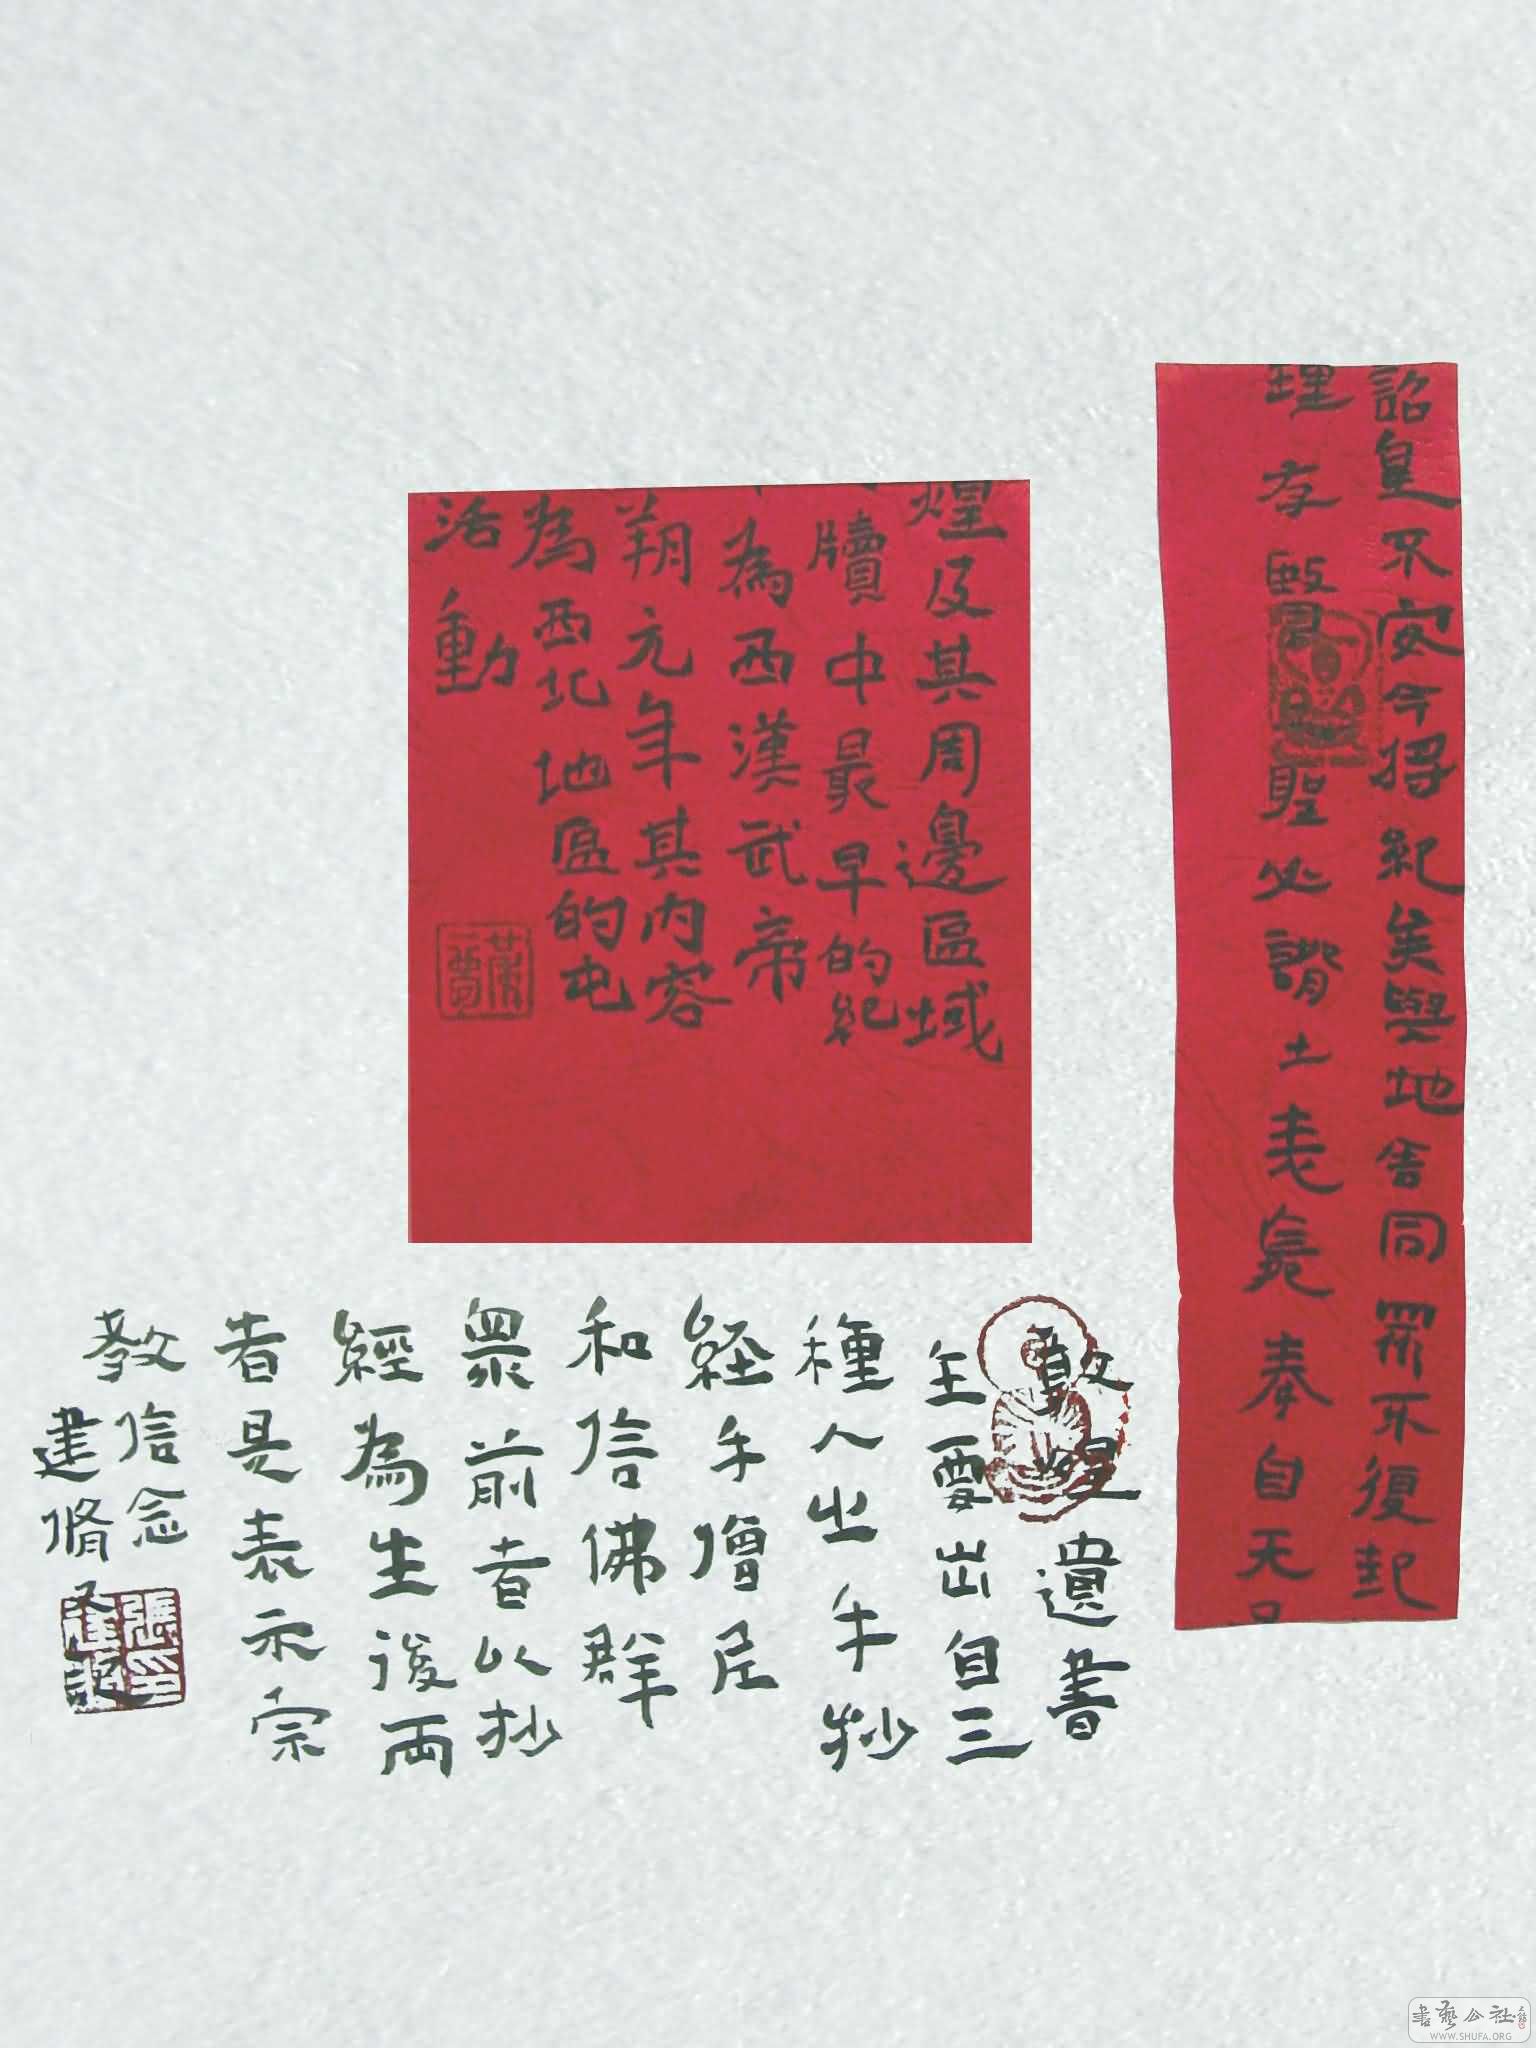 詔皇不安今将絕矣與地合同眾不復起
理存賢君聖必謂土表冕奉自天
煌及其周邊區域
牘中最早的紀
為西漢武帝
朔元年其内容
為西北地區的屯
活動
敦煌遺書
主要出自三
種人之手抄
経手僧尼
和信佛群
眾前者以抄
經為生後两
者是表示宗
教信念
建脩
書藝公社
WWW.SHUFA.ORG